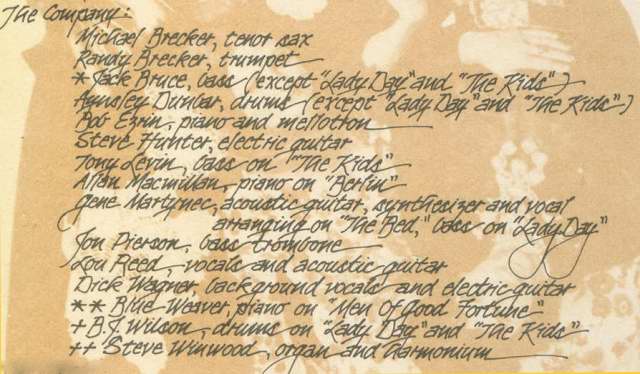 The Company:
Michael Brecker, tenor sax
Randy Brecker, trumpet
*Jack Bruce, bass (except "Lady Day" and "The Kids")
Aynsley Dunbar, drums (except "Lady Day" and "The Kids")
Bob Ezrin, piano and mellotron
Steve Hunter, electric guitar
Tony Levin, bass on "The Kids"
Allan Macmillan, piano on "Berlin"
Gene Martynec, acoustic guitar, synthesizer and vocal
arranging on "The Bed," bass on "Lady Day"
Jon Pierson, bass trombone
Lou Reed, vocals and acoustic guitar
Dick Wagner, background vocals and electric guitar
** Blue Weaver, piano on "Men Of Good Fortune"
+ B.J. Wilson, drums on "Lady Day" and "The Kids"
++ Steve Winwood, organ and Harmonium